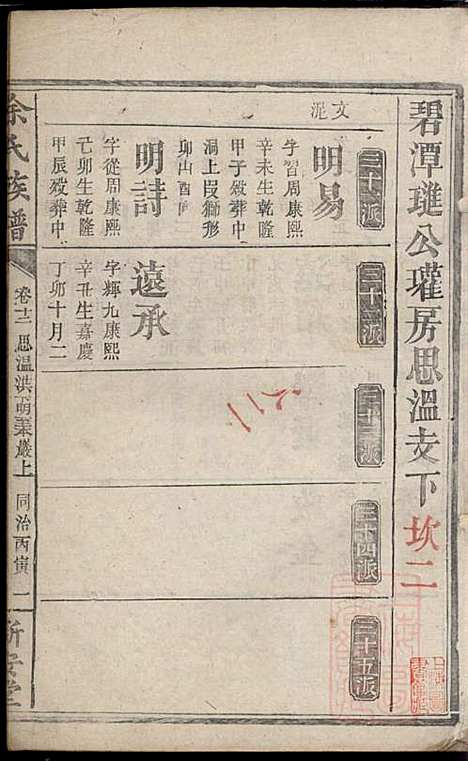 碧潭璡公瓘房思溫支下 坎二
三十一派
三十二派
三十三派
三十四派
三十五派
文
明易
字習周康熙
辛未生乾隆
甲子歿葬中
洞上㘰獅形
卯山酉
明詩
字從周康熙
己卯生乾隆
甲辰歿葬中
遠承
字輝九康熙
辛丑生嘉慶
丁卯十月二
余氏族譜
卷十二 思溫洪
巖上
同治丙寅
二
新安堂